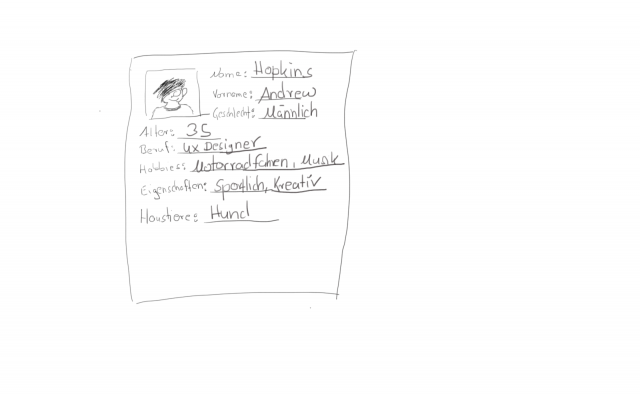 Name: Hopkins
Vorname: Andrew
Geschlecht: Männlich
Alter: 35
Beruf: UX Designer
Hobbies: Motorradfahren, Musik
Eigenschaften: Sportlich, Kreativ
Haustiere: Hund